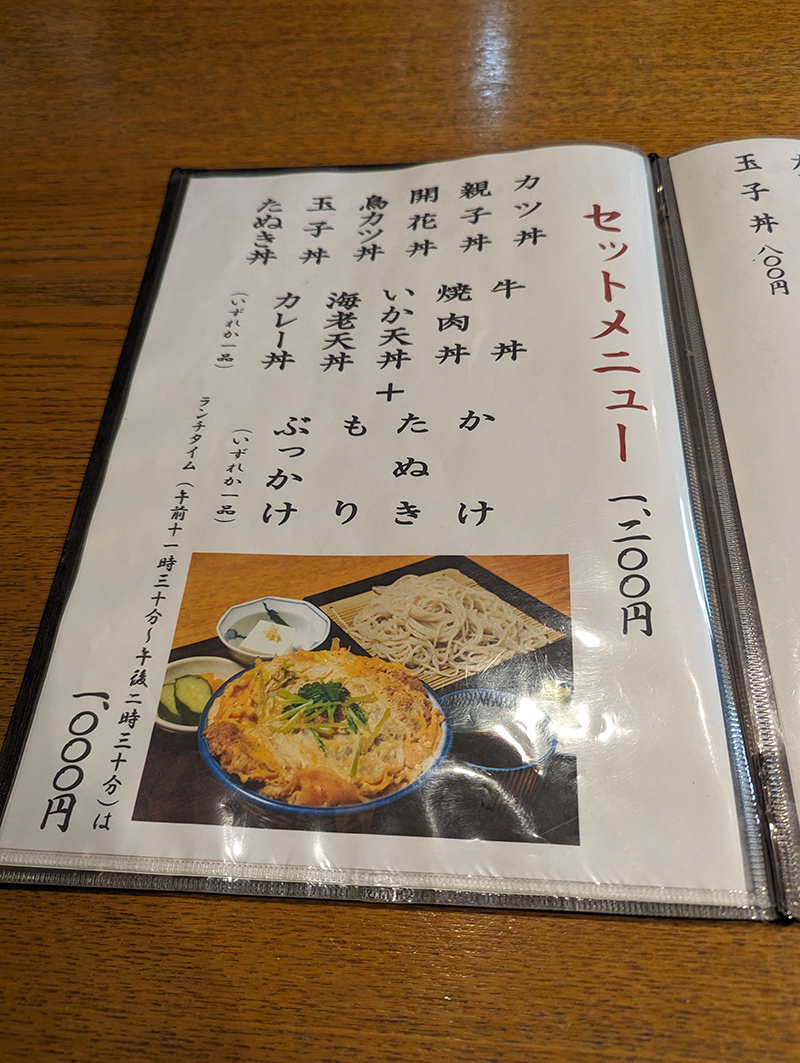 玉子丼 八〇〇円
セットメニュー 一、二〇〇円
カツ丼
親子丼
開花丼
鳥カツ丼
玉子丼
たぬき丼
牛丼
焼肉丼
いか天丼
海老天丼
カレー丼
(いずれか一品)
＋
かけ
たぬき
もり
ぶっかけ
(いずれか一品)
ランチタイム(午前十一時三十分〜午後二時三十分)は
一、〇〇〇円